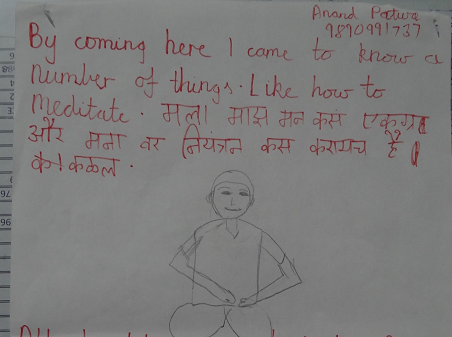 Anand
9890991737
By coming here I came to know a
number of things. Like how to
meditate. मला माझ मन कसं एकग्र
और मना वर नियंत्रन कस करायच हे
कळल.